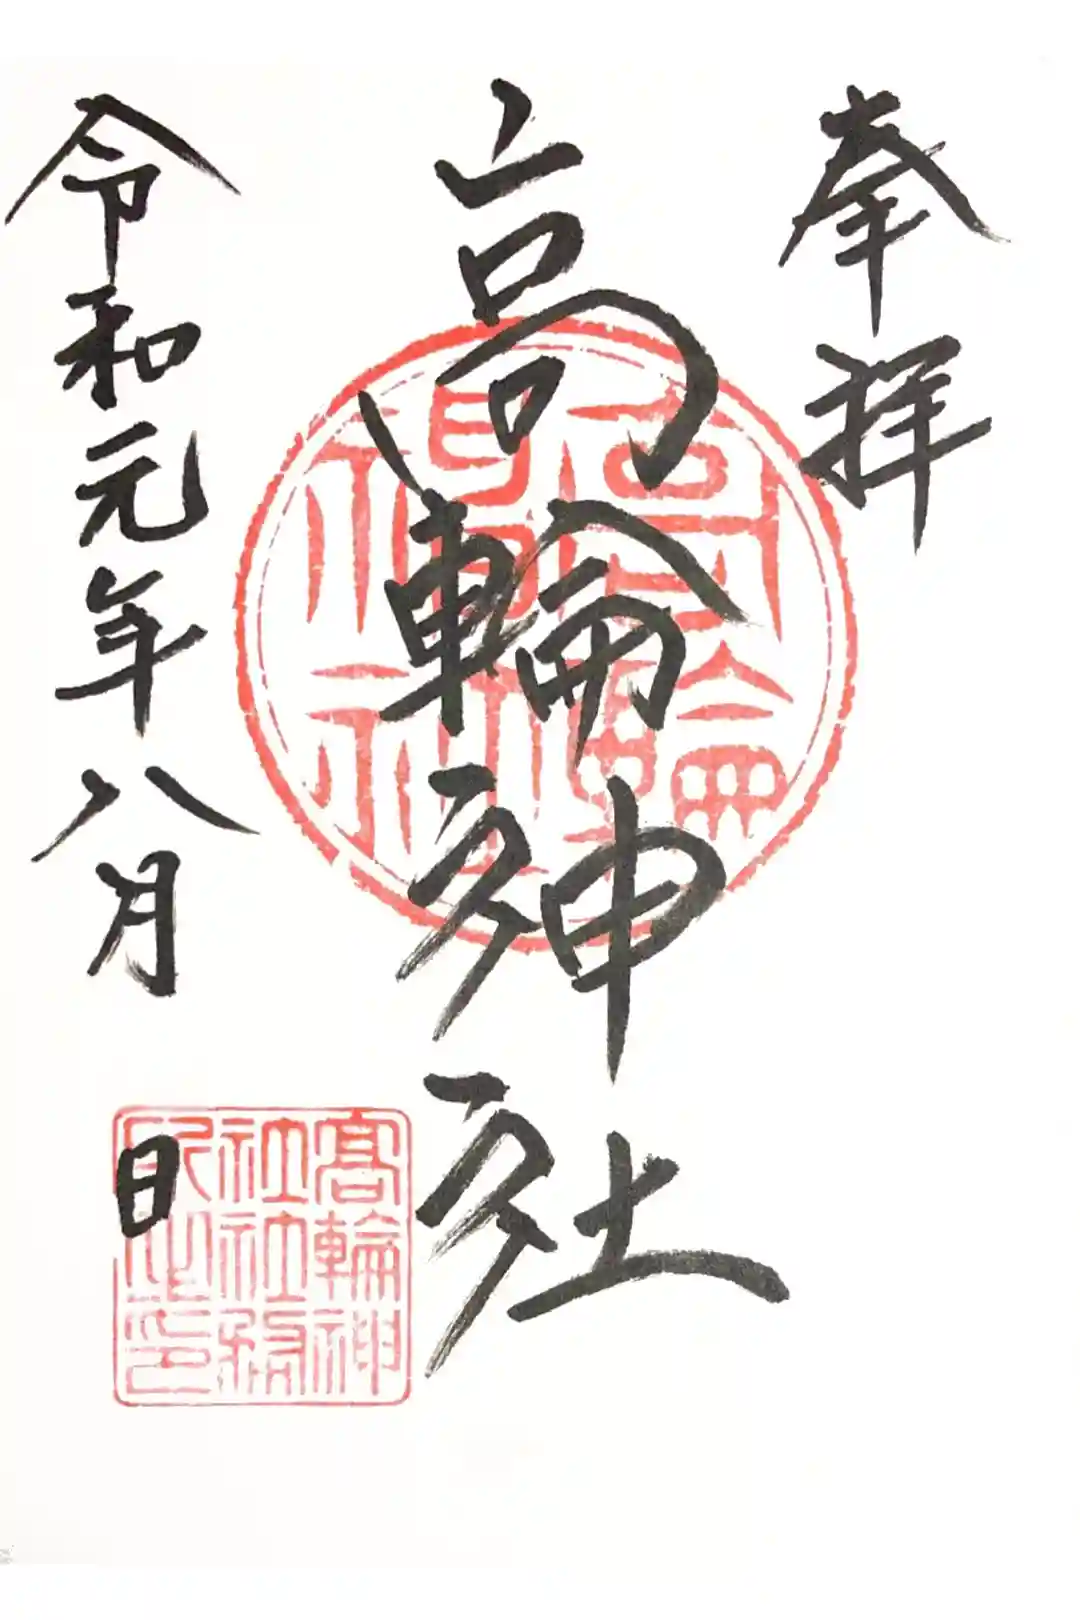 奉拝
高輪神社
令和元年八月 日
高輪神
社社務
所之印
高輪
神社